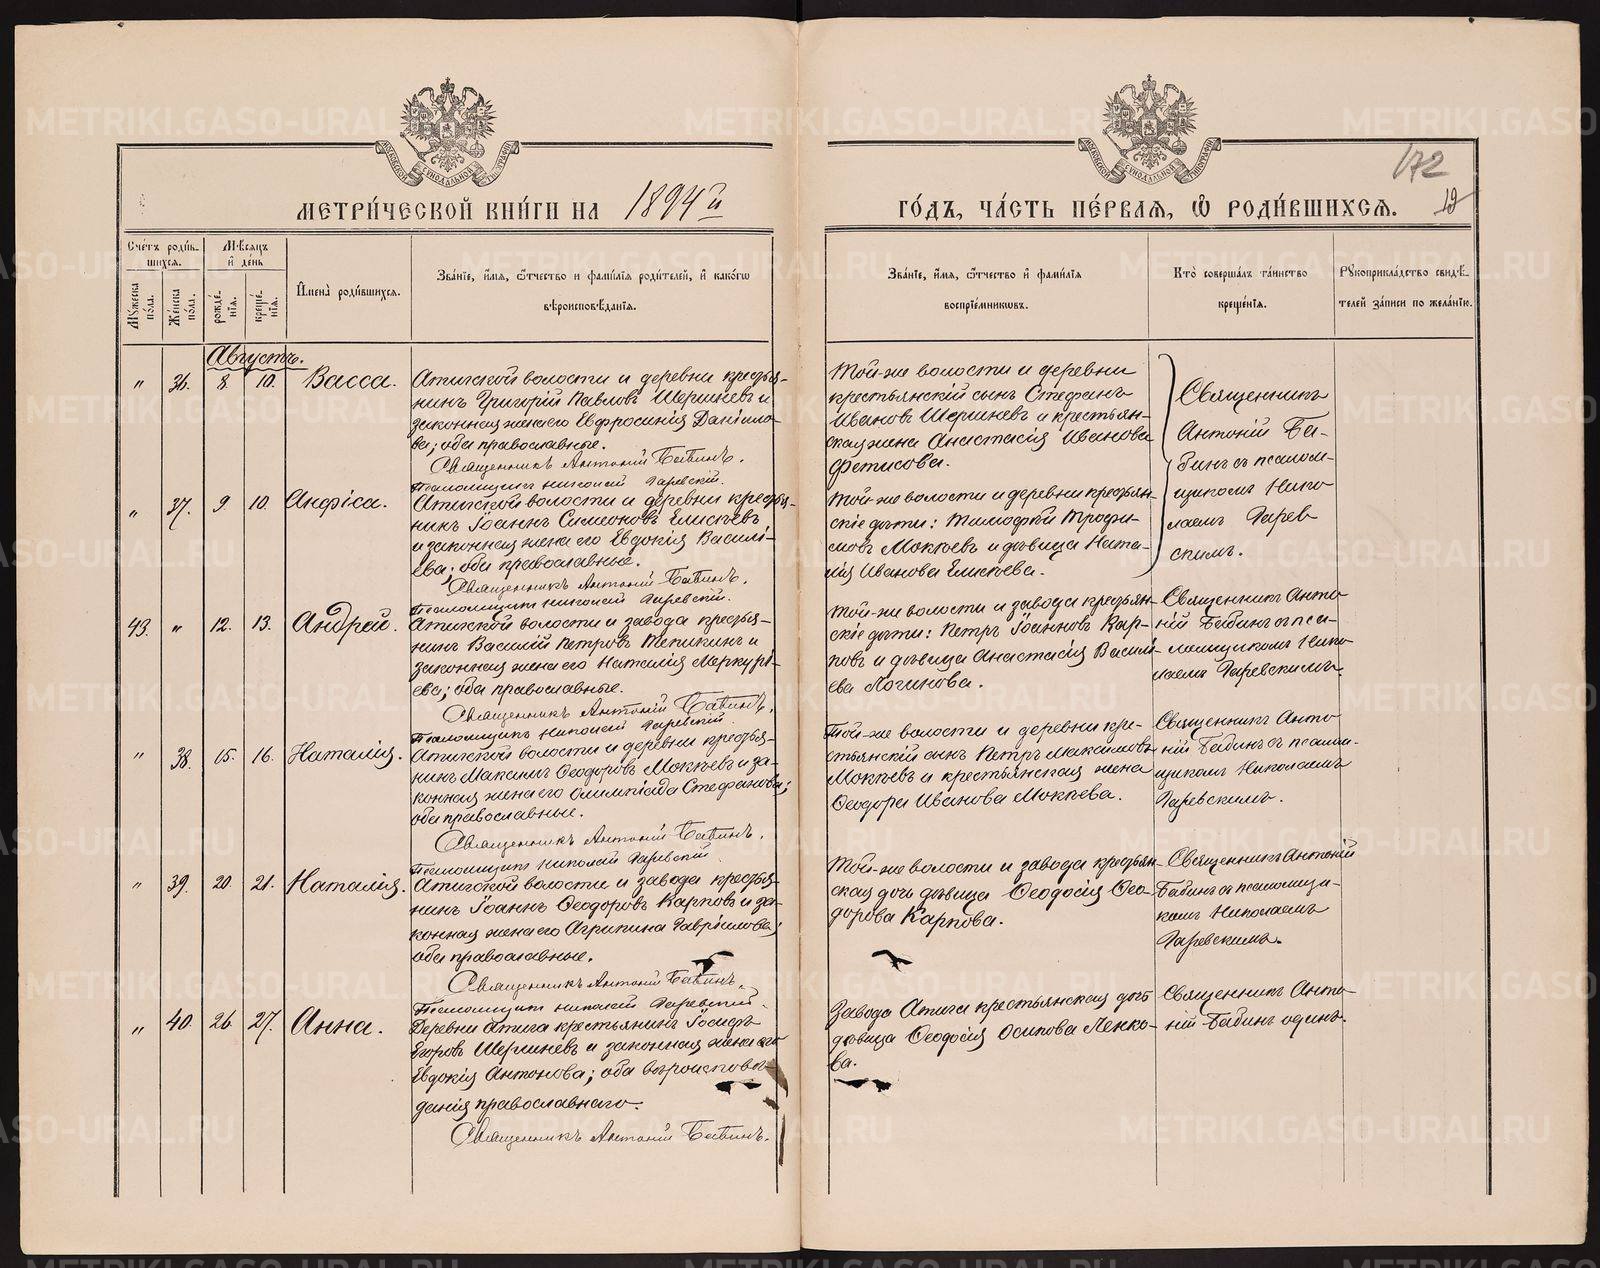 METRIKI.GASO-URAL.RU
МОСКОВСКОЙ СУНОДАЛЬНОЙ ТИПОГРАФІИ
МОСКОВСКОЙ СУНОДАЛЬНОЙ ТИПОГРАФІИ
172
19
МЕТРИ́ЧЕСКОЙ КНИ́ГИ НА 1894й
ГО́ДЪ, ЧА́СТЬ ПЕ́РВАѦ, Ѿ РОДИ́ВШИХСѦ.
Сче́тъ роди́в-
шихся.
Мѣ́сяцъ
и҆ де́нь
Му́жеска по́ла.
Же́нска по́ла.
рожде́-
нія.
креще́-
нія.
И҆мена̀ роди́вшихся.
Зва́ніе, и҆́мя, ѻ҆́тчество и фами́лія роди́телей, и҆ како́гѡ
вѣроисповѣ́данія.
Зва́ніе, и҆́мя, ѻ҆́тчество и҆ фами́лія
воспріе́мникѡвъ.
Кто̀ соверша́лъ та́инство
креще́нія.
Рꙋкоприкла́дство свидѣ́-
телей за́писи по жела́нію.
Августъ.
" 36. 8. 10. Васса.
Атигской волости и деревни кресть-
нинъ Григорій Павловъ Шершневъ и
законная жена его Евфросинія Данило-
ва; оба православные.
Священникъ Антоній Бабинъ.
Псаломщикъ Николай Гаревскій.
Той-же волости и деревни
крестьянскій сынъ Стефанъ
Ивановъ Шершневъ и крестьян-
ская жена Анастасія Иванова
Фетисова.
Священникъ
Антоній Ба-
бинъ съ псалом-
щикомъ Нико-
лаемъ Гарев-
скимъ.
" 37. 9. 10. Анфіса.
Атигской волости и деревни крестья-
нинъ Іоаннъ Симеоновъ Елисѣевъ
и законная жена его Евдокія Василі-
ева; оба православные.
Священникъ Антоній Бабинъ.
Псаломщикъ Николай Гаревскій.
Той-же волости и деревни крестьян-
скіе дѣти: Тимофей Трофи-
мовъ Мокѣевъ и дѣвица Ната-
лія Иванова Елисѣева.
43. " 12. 13. Андрей.
Атигской волости и завода крестья-
нинъ Василій Петровъ Тепикинъ и
законная жена его Наталія Меркурі-
ева; оба православные.
Священникъ Антоній Бабинъ.
Псаломщикъ Николай Гаревскій.
Той-же волости и завода крестьян-
скіе дѣти: Петръ Іоанновъ Кар-
повъ и дѣвица Анастасія Василі-
ева Логинова.
Священникъ Анто-
ній Бабинъ съ пса-
ломщикомъ Нико-
лаемъ Гаревскимъ.
" 38. 15. 16. Наталія.
Атигской волости и деревни крестья-
нинъ Максимъ Ѳеодоровъ Мокѣевъ и за-
конная жена его Олимпіада Стефанова;
оба православные.
Священникъ Антоній Бабинъ.
Псаломщикъ Николай Гаревскій.
Той-же волости и деревни кре-
стьянскій сынъ Петръ Максимовъ
Мокѣевъ и крестьянская жена
Ѳеодора Иванова Мокѣева.
Священникъ Анто-
ній Бабинъ съ псалом-
щикомъ Николаемъ
Гаревскимъ.
" 39. 20. 21. Наталія.
Атигской волости и завода крестья-
нинъ Іоаннъ Ѳеодоровъ Карповъ и за-
конная жена его Агрипина Гавріилова;
оба православные.
Священникъ Антоній Бабинъ.
Псаломщикъ Николай Гаревскій.
Той-же волости и завода крестьян-
ская дочь дѣвица Ѳеодосія Ѳео-
дорова Карпова.
Священникъ Антоній
Бабинъ съ псаломщи-
комъ Николаемъ
Гаревскимъ.
" 40. 26. 27. Анна.
Деревни Атига крестьянинъ Іосифъ
Егоровъ Шершневъ и законная жена его
Евдокія Антонова; оба вѣроисповѣ-
данія православнаго.
Священникъ Антоній Бабинъ.
Завода Атига крестьянская дочь
дѣвица Ѳеодосія Осипова Пенко-
ва.
Священникъ Анто-
ній Бабинъ одинъ.